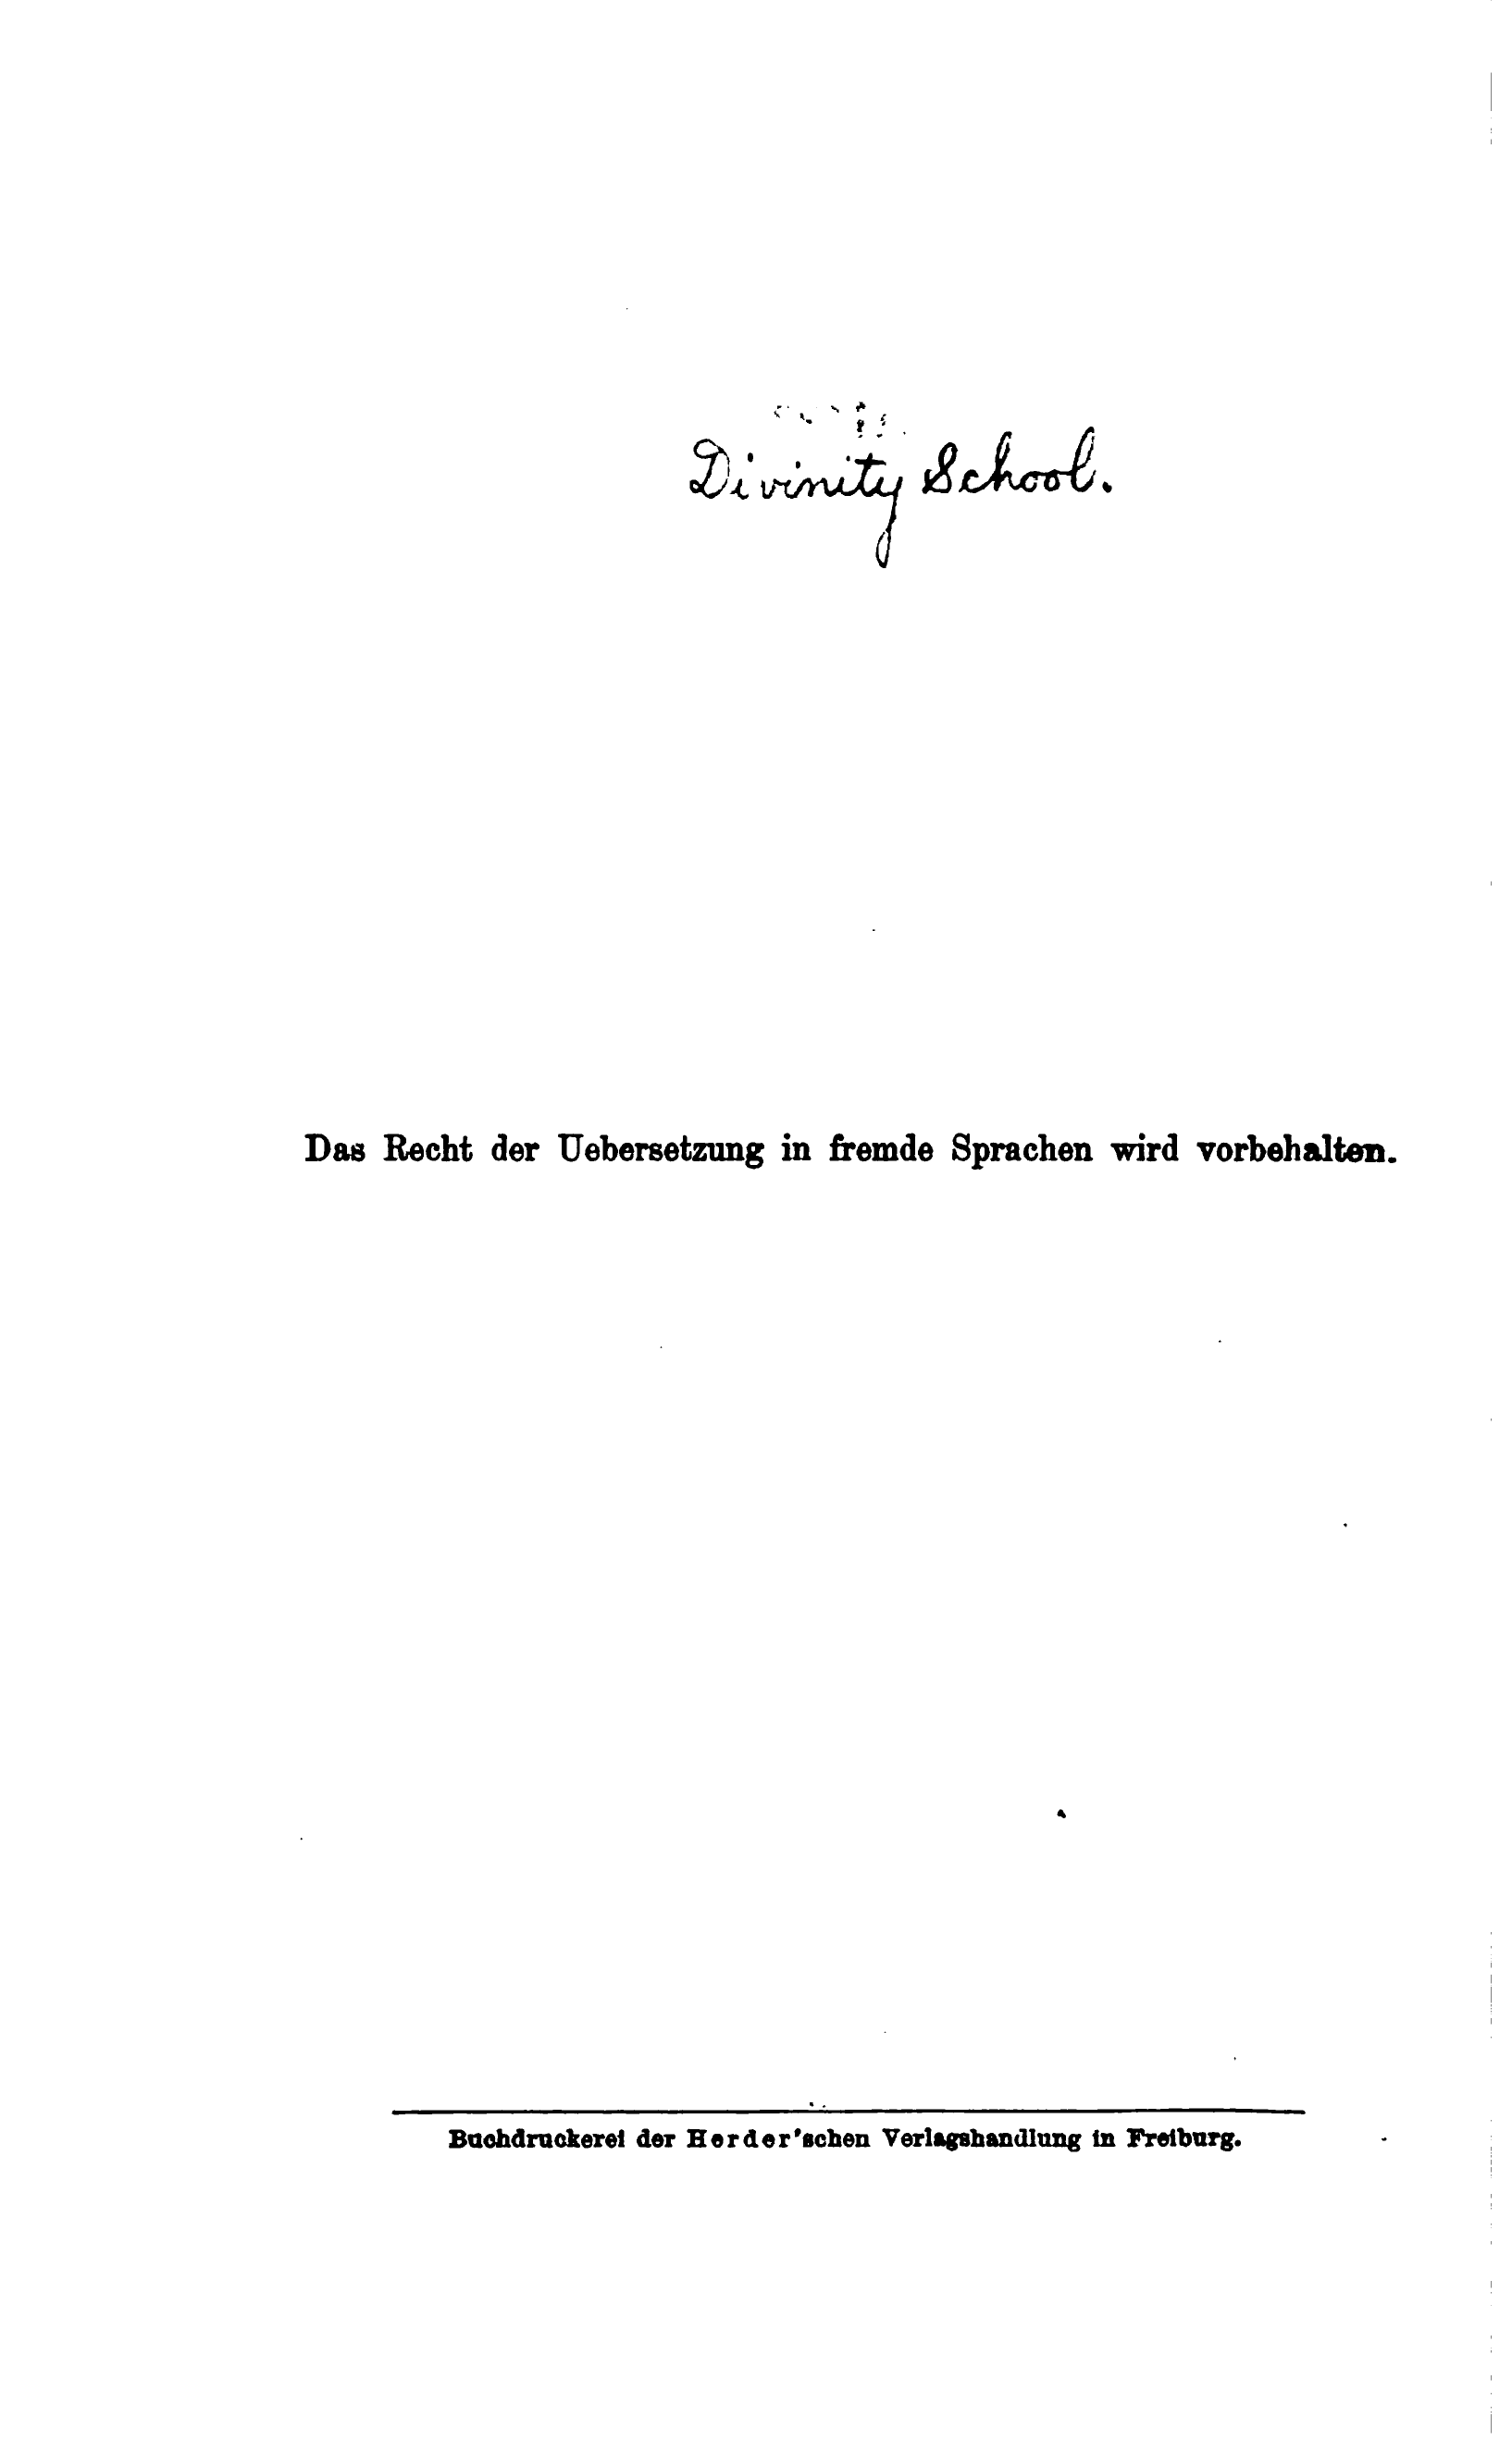 Divinity School.
Das Recht der Uebersetzung in fremde Sprachen wird vorbehalten.
Buchdruckerei der Herder'schen Verlagshandlung in Freiburg.